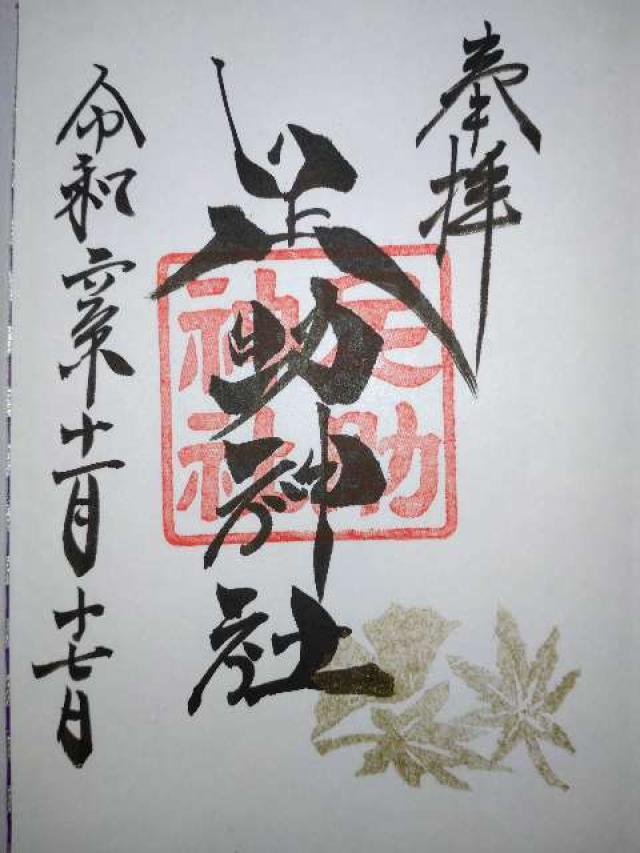 奉拝
足助神社
足助
神社
令和六年十一月十七日